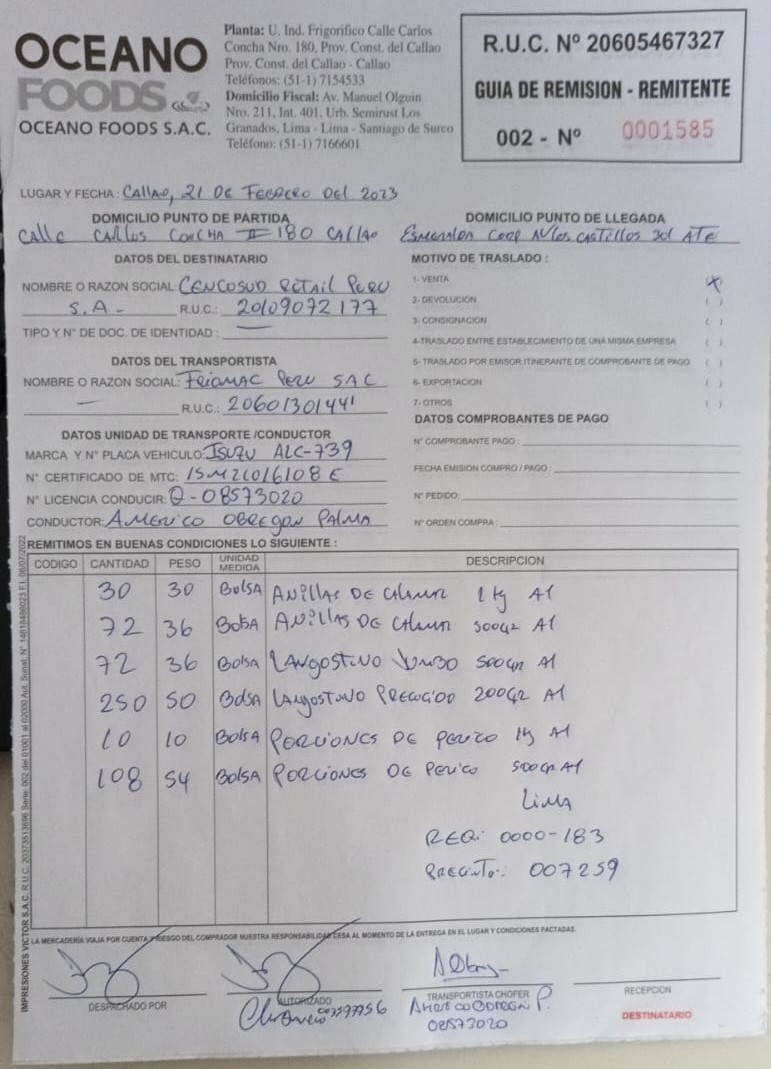 OCEANO
FOODS
OCEANO FOODS S.A.C.
Planta: U. Ind. Frigorifico Calle Carlos
Concha Nro. 180, Prov. Const. del Callao
Prov. Const. del Callao - Callao
Teléfonos: (51-1) 7154533
Domicilio Fiscal: Av. Manuel Olguin
Nro. 211, Int. 401, Urb. Semirust Los
Granados, Lima - Lima - Santiago de Surco
Teléfono: (51-1) 7166601
R.U.C. Nº 20605467327
GUIA DE REMISION - REMITENTE
002 - Nº 0001585
LUGAR Y FECHA: Callao, 21 DE Febrero DEl 2023
DOMICILIO PUNTO DE PARTIDA
Calle Carlos Concha # 180 Callao
DOMICILIO PUNTO DE LLEGADA
Esmeralda Corp Av los Castillos ATE
DATOS DEL DESTINATARIO
NOMBRE O RAZON SOCIAL: CENCOSUD RETAIL PERU
S.A - R.U.C.: 20109072177
TIPO Y Nº DE DOC. DE IDENTIDAD : —
MOTIVO DE TRASLADO :
1- VENTA x
2- DEVOLUCION ( )
3- CONSIGNACION ( )
4-TRASLADO ENTRE ESTABLECIMIENTO DE UNA MISMA EMPRESA ( )
5- TRASLADO POR EMISOR ITINERANTE DE COMPROBANTE DE PAGO ( )
6- EXPORTACION ( )
7- OTROS ( )
DATOS DEL TRANSPORTISTA
NOMBRE O RAZON SOCIAL: FRIOMAC PERU SAC
— R.U.C.: 20601301441
DATOS UNIDAD DE TRANSPORTE /CONDUCTOR
MARCA Y Nº PLACA VEHICULO: ISUZU ALC-739
Nº CERTIFICADO DE MTC: 15M21016108E
Nº LICENCIA CONDUCIR: Q-08573020
CONDUCTOR: AMERICO OBREGON PALMA
DATOS COMPROBANTES DE PAGO
Nº COMPROBANTE PAGO :
FECHA EMISION COMPRO / PAGO :
Nº PEDIDO:
Nº ORDEN COMPRA :
REMITIMOS EN BUENAS CONDICIONES LO SIGUIENTE :
CODIGO CANTIDAD PESO UNIDAD MEDIDA DESCRIPCION
30 30 BolSA ANillAS DE CAlAMAR 1 Kg Al
72 36 BolSA ANillAS DE CAlAMAR 500Gr Al
72 36 BolSA LANGOSTINO JUMBO 500Gr Al
250 50 BolSA LANGOSTINO PRECOCIDO 200GR Al
10 10 BolSA PORCIONES DE PERICO 1Kg Al
108 54 BolSA PORCIONES DE PERICO 500Gr Al
LIMA
REQ: 0000-183
PRECINTO: 007259
LA MERCADERÍA VIAJA POR CUENTA Y RIESGO DEL COMPRADOR NUESTRA RESPONSABILIDAD CESA AL MOMENTO DE LA ENTREGA EN EL LUGAR Y CONDICIONES PACTADAS.
DESPACHADO POR
AUTORIZADO
TRANSPORTISTA CHOFER
Americo Obregon P.
08573020
RECEPCION
DESTINATARIO
IMPRESIONES VICTOR S.A.C. R.U.C. 20373513696 Serie: 002 del 01001 al 02000 Aut. Sunat. Nº 14818486023 F.I. 06/07/2022